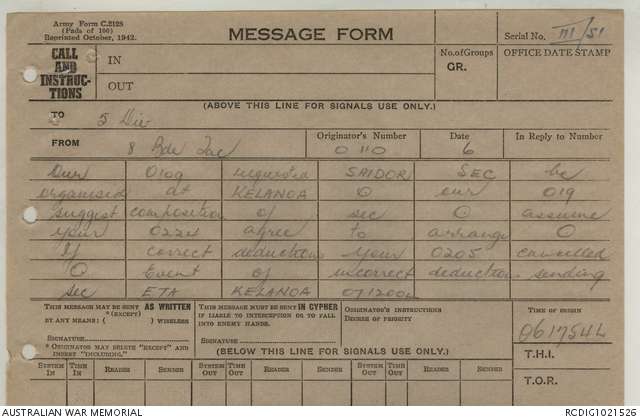 Army Form C.2128
(Pads of 100)
Reprinted October, 1942.
MESSAGE FORM
Serial No. III/51
CALL AND INSTRUCTIONS
IN
OUT
No. of Groups
GR.
OFFICE DATE STAMP
(ABOVE THIS LINE FOR SIGNALS USE ONLY.)
TO 5 Div
FROM 8 Bde Tac
Originator's Number 0110
Date 6
In Reply to Number
Our 0109 requested SAIDOR SEC be
organised at KELANOA O our 019
suggest composition of sec O assume
your 0224 agree to arrange O
If correct deduction your 0205 cancelled
O Event of incorrect deduction sending
sec ETA KELANOA 071200L
THIS MESSAGE MAY BE SENT AS WRITTEN
*(EXCEPT)
BY ANY MEANS: ( ) WIRELESS
SIGNATURE
* ORIGINATOR MAY DELETE "EXCEPT" AND
INSERT "INCLUDING."
THIS MESSAGE MUST BE SENT IN CYPHER
IF LIABLE TO INTERCEPTION OR TO FALL
INTO ENEMY HANDS.
SIGNATURE
ORIGINATOR'S INSTRUCTIONS
DEGREE OF PRIORITY
TIME OF ORIGIN
061754L
T.H.I.
T.O.R.
(BELOW THIS LINE FOR SIGNALS USE ONLY.)
SYSTEM IN TIME IN READER SENDER SYSTEM OUT TIME OUT READER SENDER SYSTEM OUT TIME OUT READER SENDER
AUSTRALIAN WAR MEMORIAL
RCDIG1021526